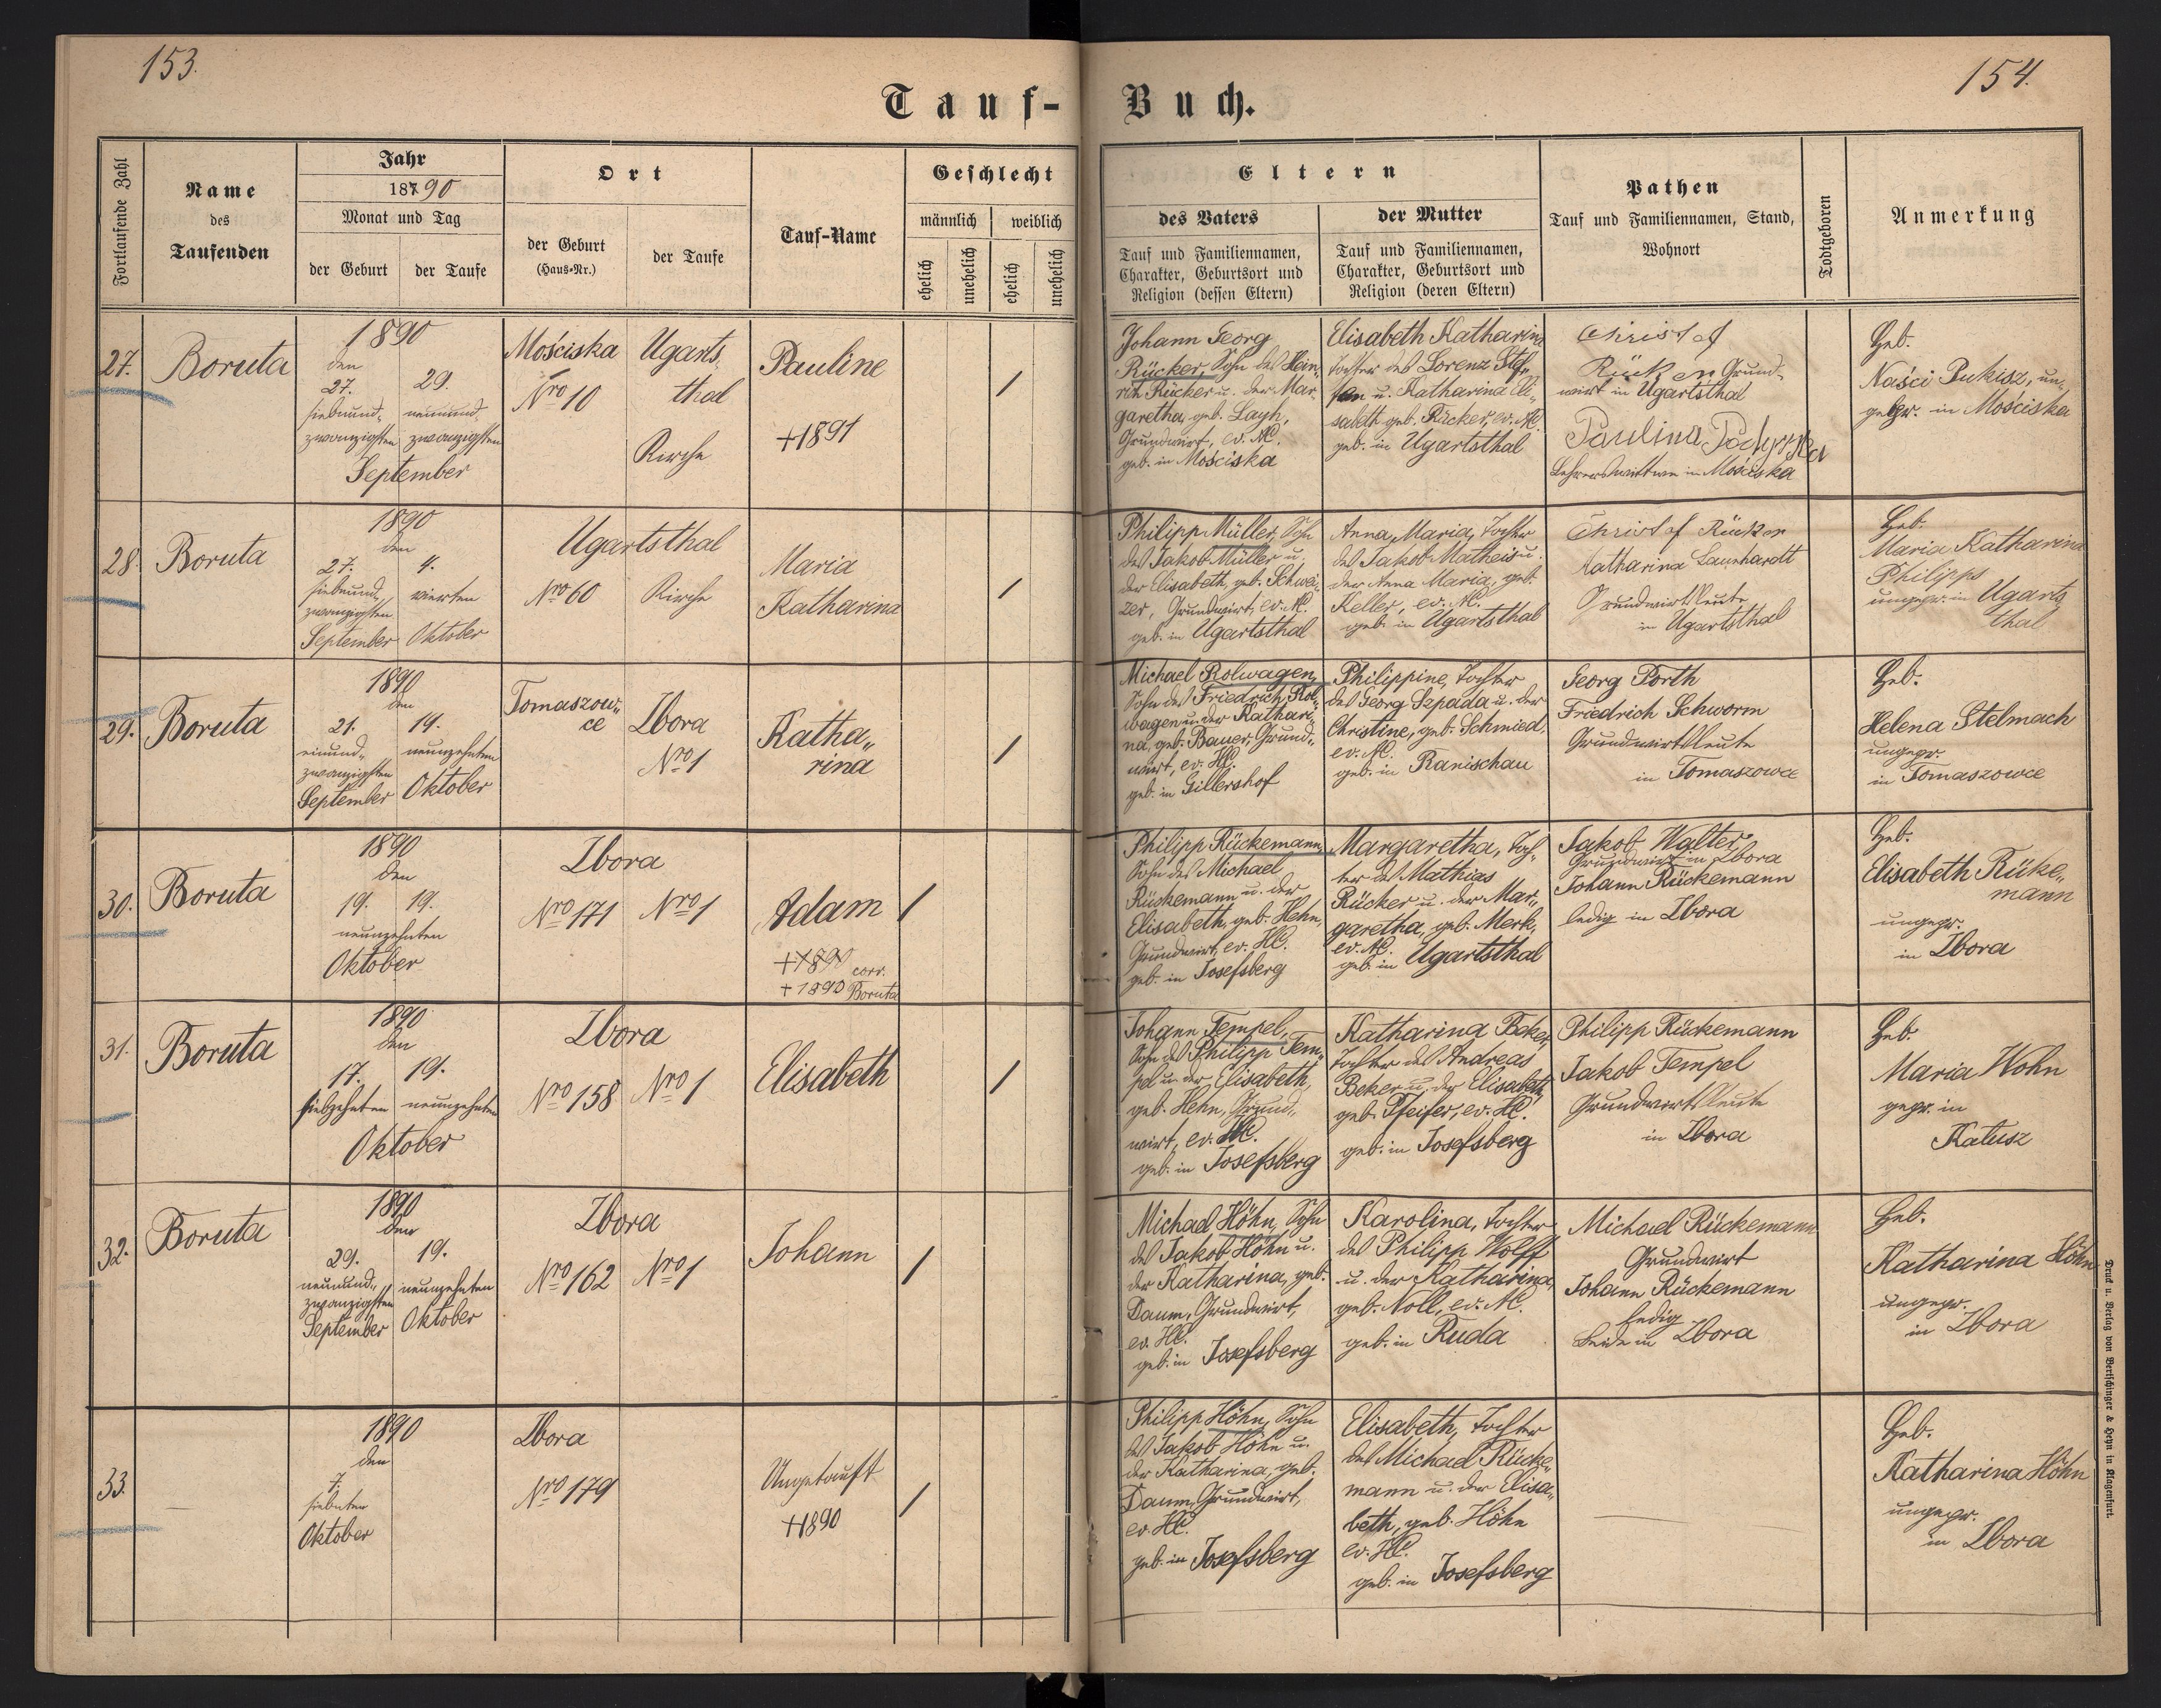 153.
154.
Tauf-Buch.
Fortlaufende Zahl
Name
des
Taufenden
Jahr
187 90
Monat und Tag
der Geburt
der Taufe
Ort
der Geburt
(Haus-Nr.)
der Taufe
Tauf-Name
Geschlecht
männlich
weiblich
ehelich
unehelich
ehelich
unehelich
Eltern
des Vaters
Tauf und Familiennamen,
Charakter, Geburtsort und
Religion (dessen Eltern)
der Mutter
Tauf und Familiennamen,
Charakter, Geburtsort und
Religion (deren Eltern)
Pathen
Tauf und Familiennamen, Stand,
Wohnort
Todtgeboren
Anmerkung
27.
Boruta
1890
den
27.
siebenund-
zwanzigsten
29.
neunund
zwanzigsten
September
Mościska
Nro 10
Ugarts-
thal
Kirche
Pauline
+1891
/
Johann Georg
Rücker, Sohn des Hein-
rich Rücker u. der Mar-
garetha, geb. Layh,
Grundwirt, ev. AC.
geb. in Mościska
Elisabeth Katharina
Tochter des Lorenz Stef-
fan u. Katharina Eli-
sabeth geb. Rücker, ev. AC.
geb. in Ugartsthal
Christof
Rücker Grund-
wirt in Ugartsthal
Paulina
Lehrerswittwe in Mościska
Heb.
Naści Pukisz, un-
gepr. in Mościska
28.
Boruta
1890
den
27.
siebenund-
zwanzigsten
September
4.
vierten
Oktober
Ugartsthal
Nro 60
Kirche
Maria
Katharina
/
Philipp Müller, Sohn
des Jakob Müller u.
der Elisabeth, geb. Schwei-
zer, Grundwirt, ev. AC.
geb. in Ugartsthal
Anna Maria, Tochter
des Jakob Matheis u.
der Anna Maria, geb.
Keller, ev. AC.
geb. in Ugartsthal
Christof Rücker
Katharina Launhardt
Grundwirtsleute
in Ugartsthal
Heb.
Maria Katharina
Philipps
ungepr. in Ugarts
thal
29.
Boruta
1890
den
21.
einund-
zwanzigsten
September
19.
neunzehnten
Oktober
Tomaszow-
ce
Zbora
Nro 1
Katha-
rina
/
Michael Rolwagen,
Sohn des Friedrich Rol-
wagen u. der Kathari-
na, geb. Bauer, Grund-
wirt, ev. HC.
geb. in Gillershof
Philippine, Tochter
des Georg Szpada u. der
Christine, geb. Schmied,
ev. AC.
geb. in Ranischau
Georg Porth
Friedrich Schworm
Grundwirtsleute
in Tomaszowce
Heb.
Helena Stelmach
ungepr.
in Tomaszowce
30.
Boruta
1890
den
19.
19.
neunzehnten
Oktober
Zbora
Nro 171
Nro 1
Adam
+1890
+1890 corr.
Boruta
/
Philipp Rückemann,
Sohn des Michael
Rückemann u. der
Elisabeth, geb. Hehn,
Grundwirt, ev. HC.
geb. in Josefsberg
Margaretha, Toch-
ter des Mathias
Rücker u. der Mar-
garetha, geb. Merk,
ev. AC.
geb. in Ugartsthal
Jakob Walter,
Grundwirt in Zbora
Johann Rückemann
ledig in Zbora
Heb.
Elisabeth Rüke-
mann
ungepr.
in Zbora
31.
Boruta
1890
den
17.
siebzehnten
19.
neunzehnten
Oktober
Zbora
Nro 158
Nro 1
Elisabeth
/
Johann Tempel,
Sohn des Philipp Tem-
pel u. der Elisabeth,
geb. Hehn, Grund-
wirt, ev. HC.
geb. in Josefsberg
Katharina Beker,
Tochter des Andreas
Beker u. der Elisabeth,
geb. Pfeifer, ev. HC.
geb. in Josefsberg
Philipp Rückemann
Jakob Tempel
Grundwirtsleute
in Zbora
Heb.
Maria Hohn
gepr. in
Kalusz
32.
Boruta
1890
den
29.
neunund-
zwanzigsten
September
19.
neunzehnten
Oktober
Zbora
Nro 162
Nro 1
Johann
/
Michael Höhn, Sohn
des Jakob Höhn u.
der Katharina, geb.
Daum, Grundwirt,
ev. HC.
geb. in Josefsberg
Karolina, Tochter
des Philipp Wolff
u. der Katharina,
geb. Noll, ev. AC.
geb. in Ruda
Michael Rückemann
Grundwirt
Johann Rückemann
ledig
beide in Zbora
Heb.
Katharina Höhn
ungepr.
in Zbora
33.
1890
den
7.
siebenten
Oktober
Zbora
Nro 179
Ungetauft
+1890
/
Philipp Höhn, Sohn
des Jakob Höhn u.
der Katharina, geb.
Daum, Grundwirt,
ev. HC.
geb. in Josefsberg
Elisabeth, Tochter
des Michael Rücke-
mann u. der Elisa-
beth, geb. Höhn
ev. HC.
geb. in Josefsberg
Heb.
Katharina Höhn
ungepr.
in Zbora
Druck u. Verlag von Bertschinger & Heyn in Klagenfurt.